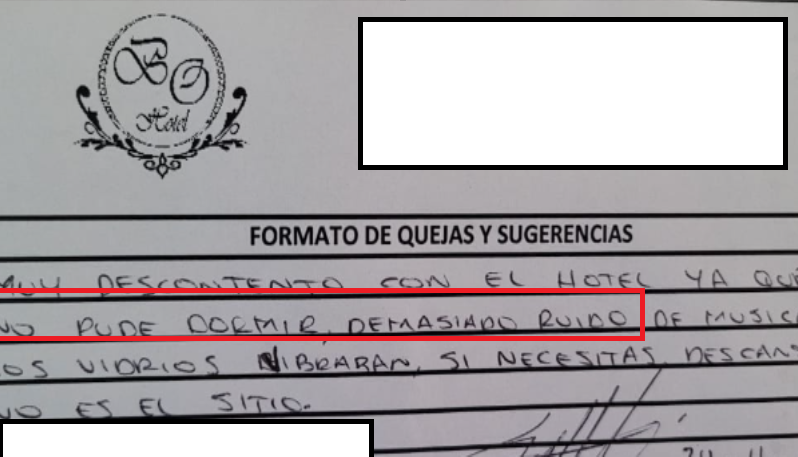 BO
Hotel
FORMATO DE QUEJAS Y SUGERENCIAS
MUY DESCONTENTO CON EL HOTEL YA QUE
NO PUDE DORMIR, DEMASIADO RUIDO DE MUSICA
VIDRIOS VIBRARAN, SI NECESITAS
NO ES EL SITIO.